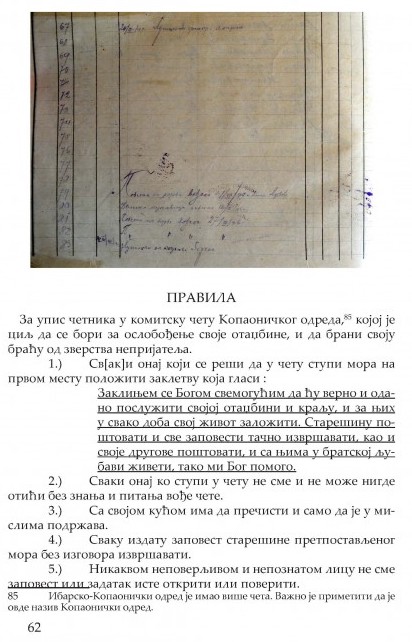 67
68
69
70
71
72
73
74
75
76
77
78
79
80
81
82
83
ПРАВИЛА
За упис четника у комитску чету Копаоничког одреда,85 којој је
циљ да се бори за ослобођење своје отаџбине, и да брани своју
браћу од зверства непријатеља.
1.) Св[ак]и онај који се реши да у чету ступи мора на
првом месту положити заклетву која гласи :
Заклињем се Богом свемогућим да ћу верно и ода-
но послужити својој отаџбини и краљу, и за њих
у свако доба свој живот заложити. Старешину по-
штовати и све заповести тачно извршавати, као и
своје другове поштовати, и са њима у братској љу-
бави живети, тако ми Бог помого.
2.) Сваки онај ко ступи у чету не сме и не може нигде
отићи без знања и питања вође чете.
3.) Са својом кућом има да пречисти и само да је у ми-
слима подржава.
4.) Сваку издату заповест старешине претпостављеног
мора без изговора извршавати.
5.) Никаквом неповерљивом и непознатом лицу не сме
заповест или задатак исте открити или поверити.
85 Ибарско-Копаонички одред је имао више чета. Важно је приметити да је
овде назив Копаонички одред.
62